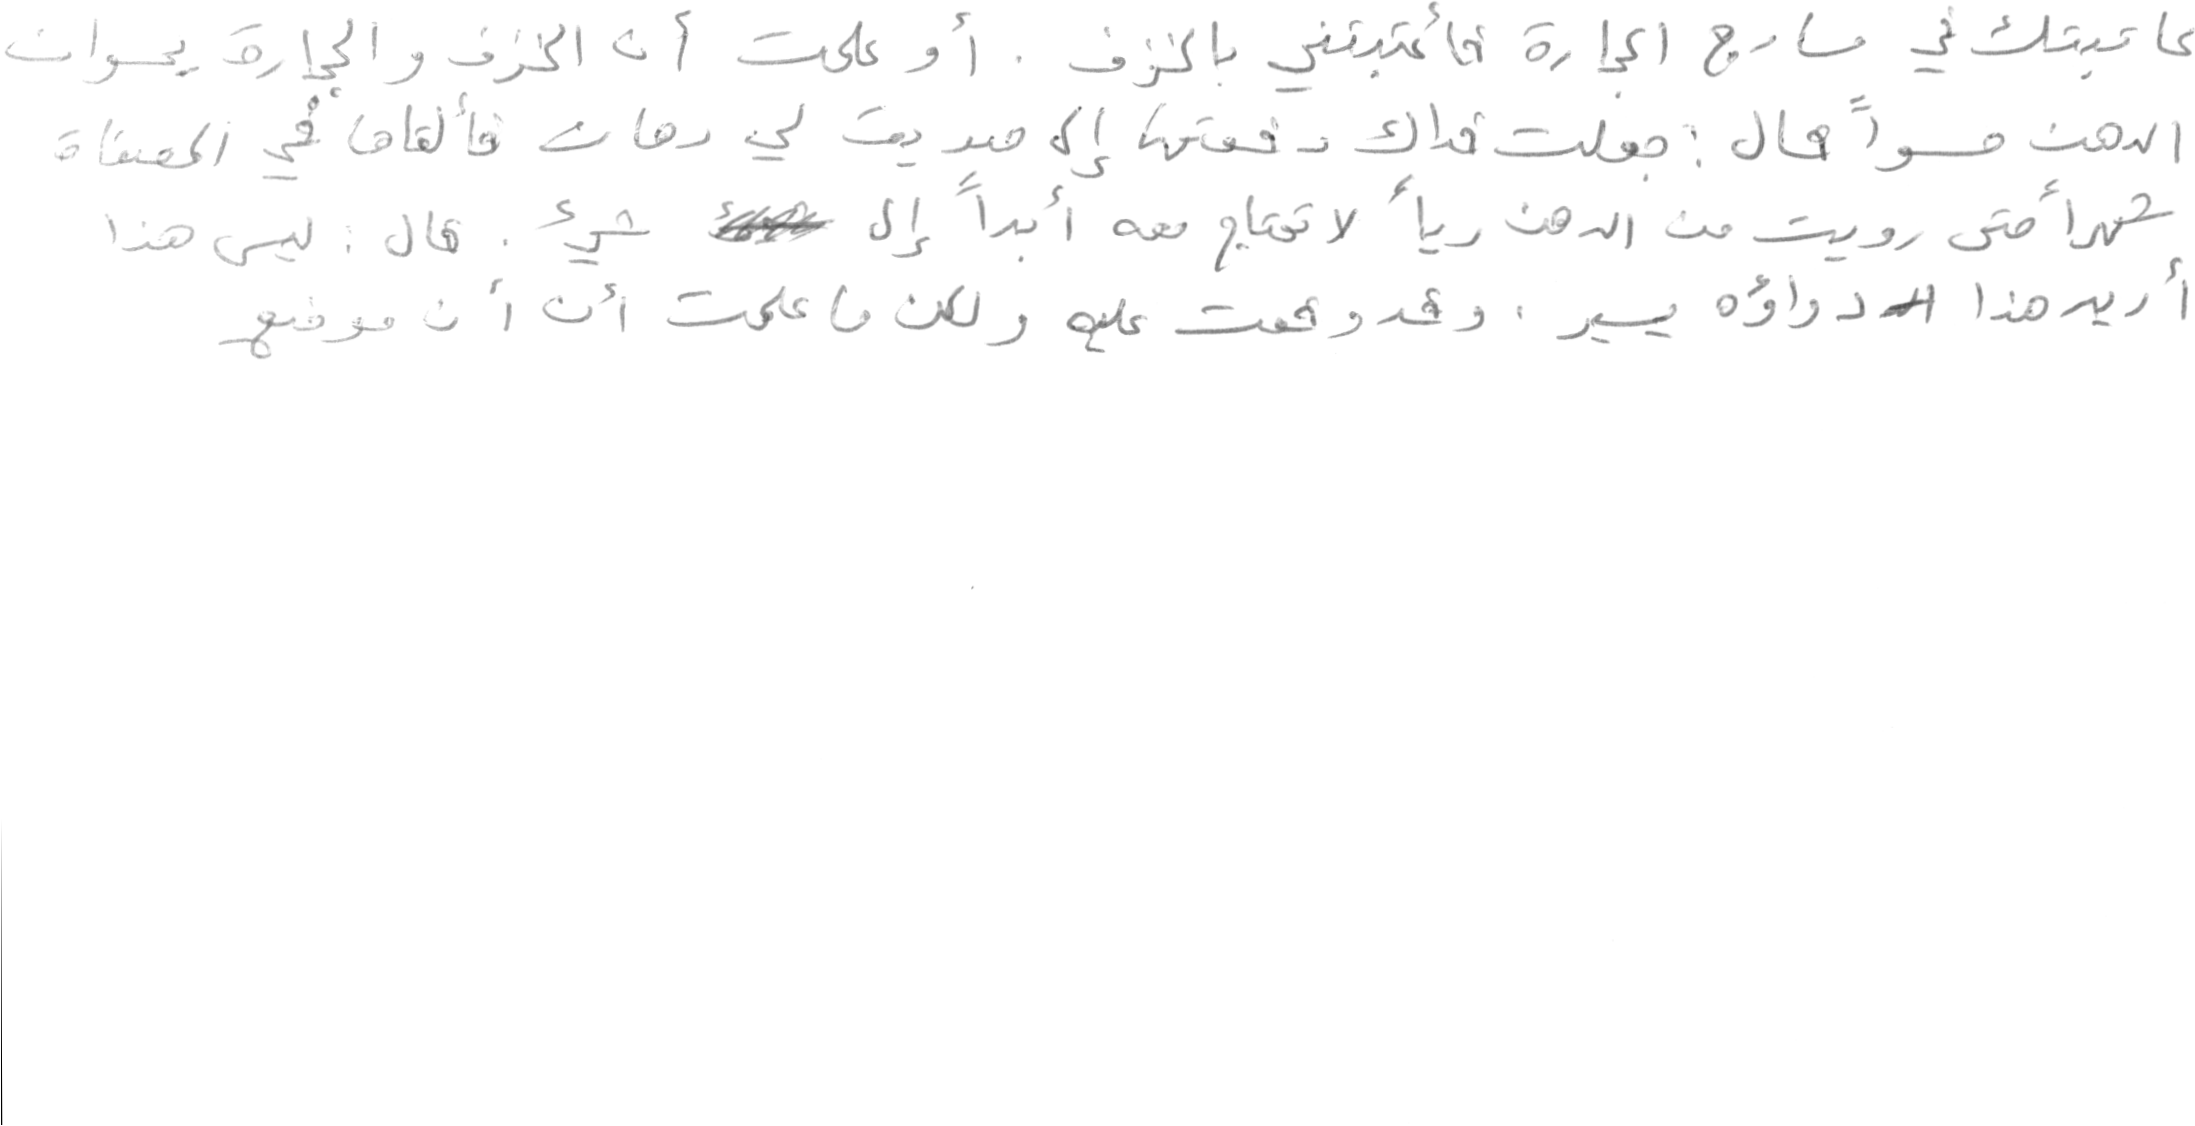 عاتبتك في مسارج الحجارة فأعتبتني بالخزف . أو علمت أن الخزف والحجارة يحسوان
الدهن حسواً قال : جعلت فداك دفعتها إلى صديق لي دهان فألقاها في المصفاة
شهراً حتى رويت من الدهن رياً لا تحتاج معه أبداً إلى شيء . قال : ليس هذا
أريد هذا دواؤه يسير . وقد وقعت عليه ولكن ما علمت أن أن موضع